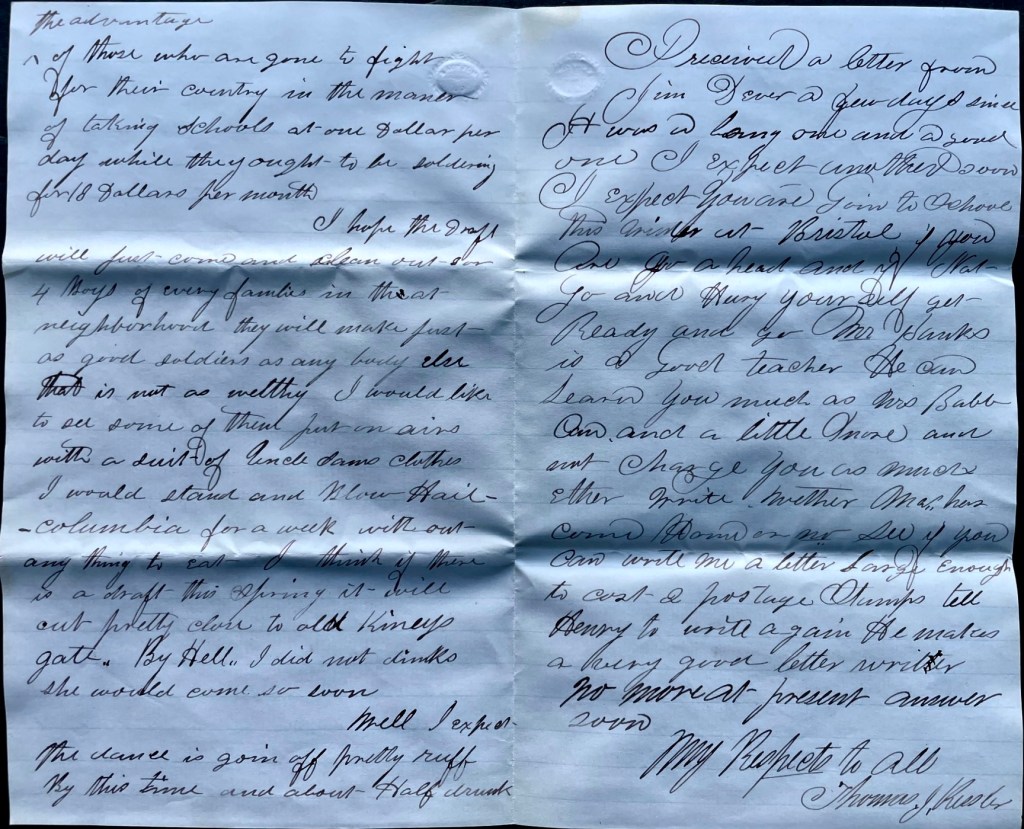 the advantage
^ of those who are gone to fight
for their country in the maner
of taking schools at one Dollar per
day while they ought to be soldering
for 18 Dollars per month
I hope the draft
will just come and clean out 3 or
4 Boys of every families in that
neighborhood they will make just
as good soldiers as any body else
that is not as welthy I would like
to see some of them put on airs
with a suit of Uncle Sams clothes
I would stand and Blow Hail-
-columbia for a week with out
any thing to eat I think if there
is a draft this Spring it will
cut pretty close to old Kineys
gate" By Hell" I did not dinks
she would come so soon
Well I expect
the dance is goin off pretty ruff
By this time and about Half drunk
I received a letter from
Jim Dever a few days since
It was a long one and a good
one I expect another soon
I expect you are goin to School
this winter at Bristol if you
are go a head and if Not
Go and Hury your Self get
Ready and go Mr Hanks
is a good teacher He can
Learn you much as Mrs Babb
can and a little more and
not charge you as much
Ether write wether Mag has
come Home or no See if you
can write me a letter Large Enough
to cost 2 postage Stamps tell
Henry to write again He makes
a very good letter writer
no more at present answer
soon
My Respects to all
Thomas J. Kessler